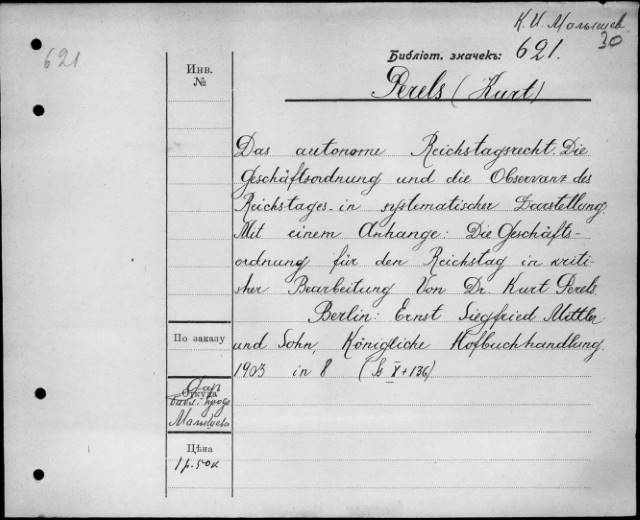 К. И. Малышев
30
621
Библіот. значекъ: 621.
Perels (Kurt)
Инв.
№
Das autonome Reichstagsrecht. Die
Geschäftsordnung und die Observanz des
Reichstages in systematischer Darstellung.
Mit einem Anhange: Die Geschäfts-
ordnung für den Reichstag in kriti-
sher Bearbeitung Von Dr. Kurt Perels.
Berlin: Ernst Siegfried Mittler
und Sohn, Königliche Hofbuchhandlung.
1903 in 8 (S X + 136)
По заказу
Откуда
Дар
библ. проф.
Малышева
Цѣна
1 р. 50 к